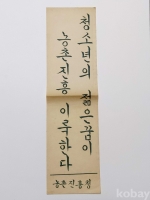 청소년의 젊은꿈이
농촌진흥 이룩하다
농촌진흥청
kobay